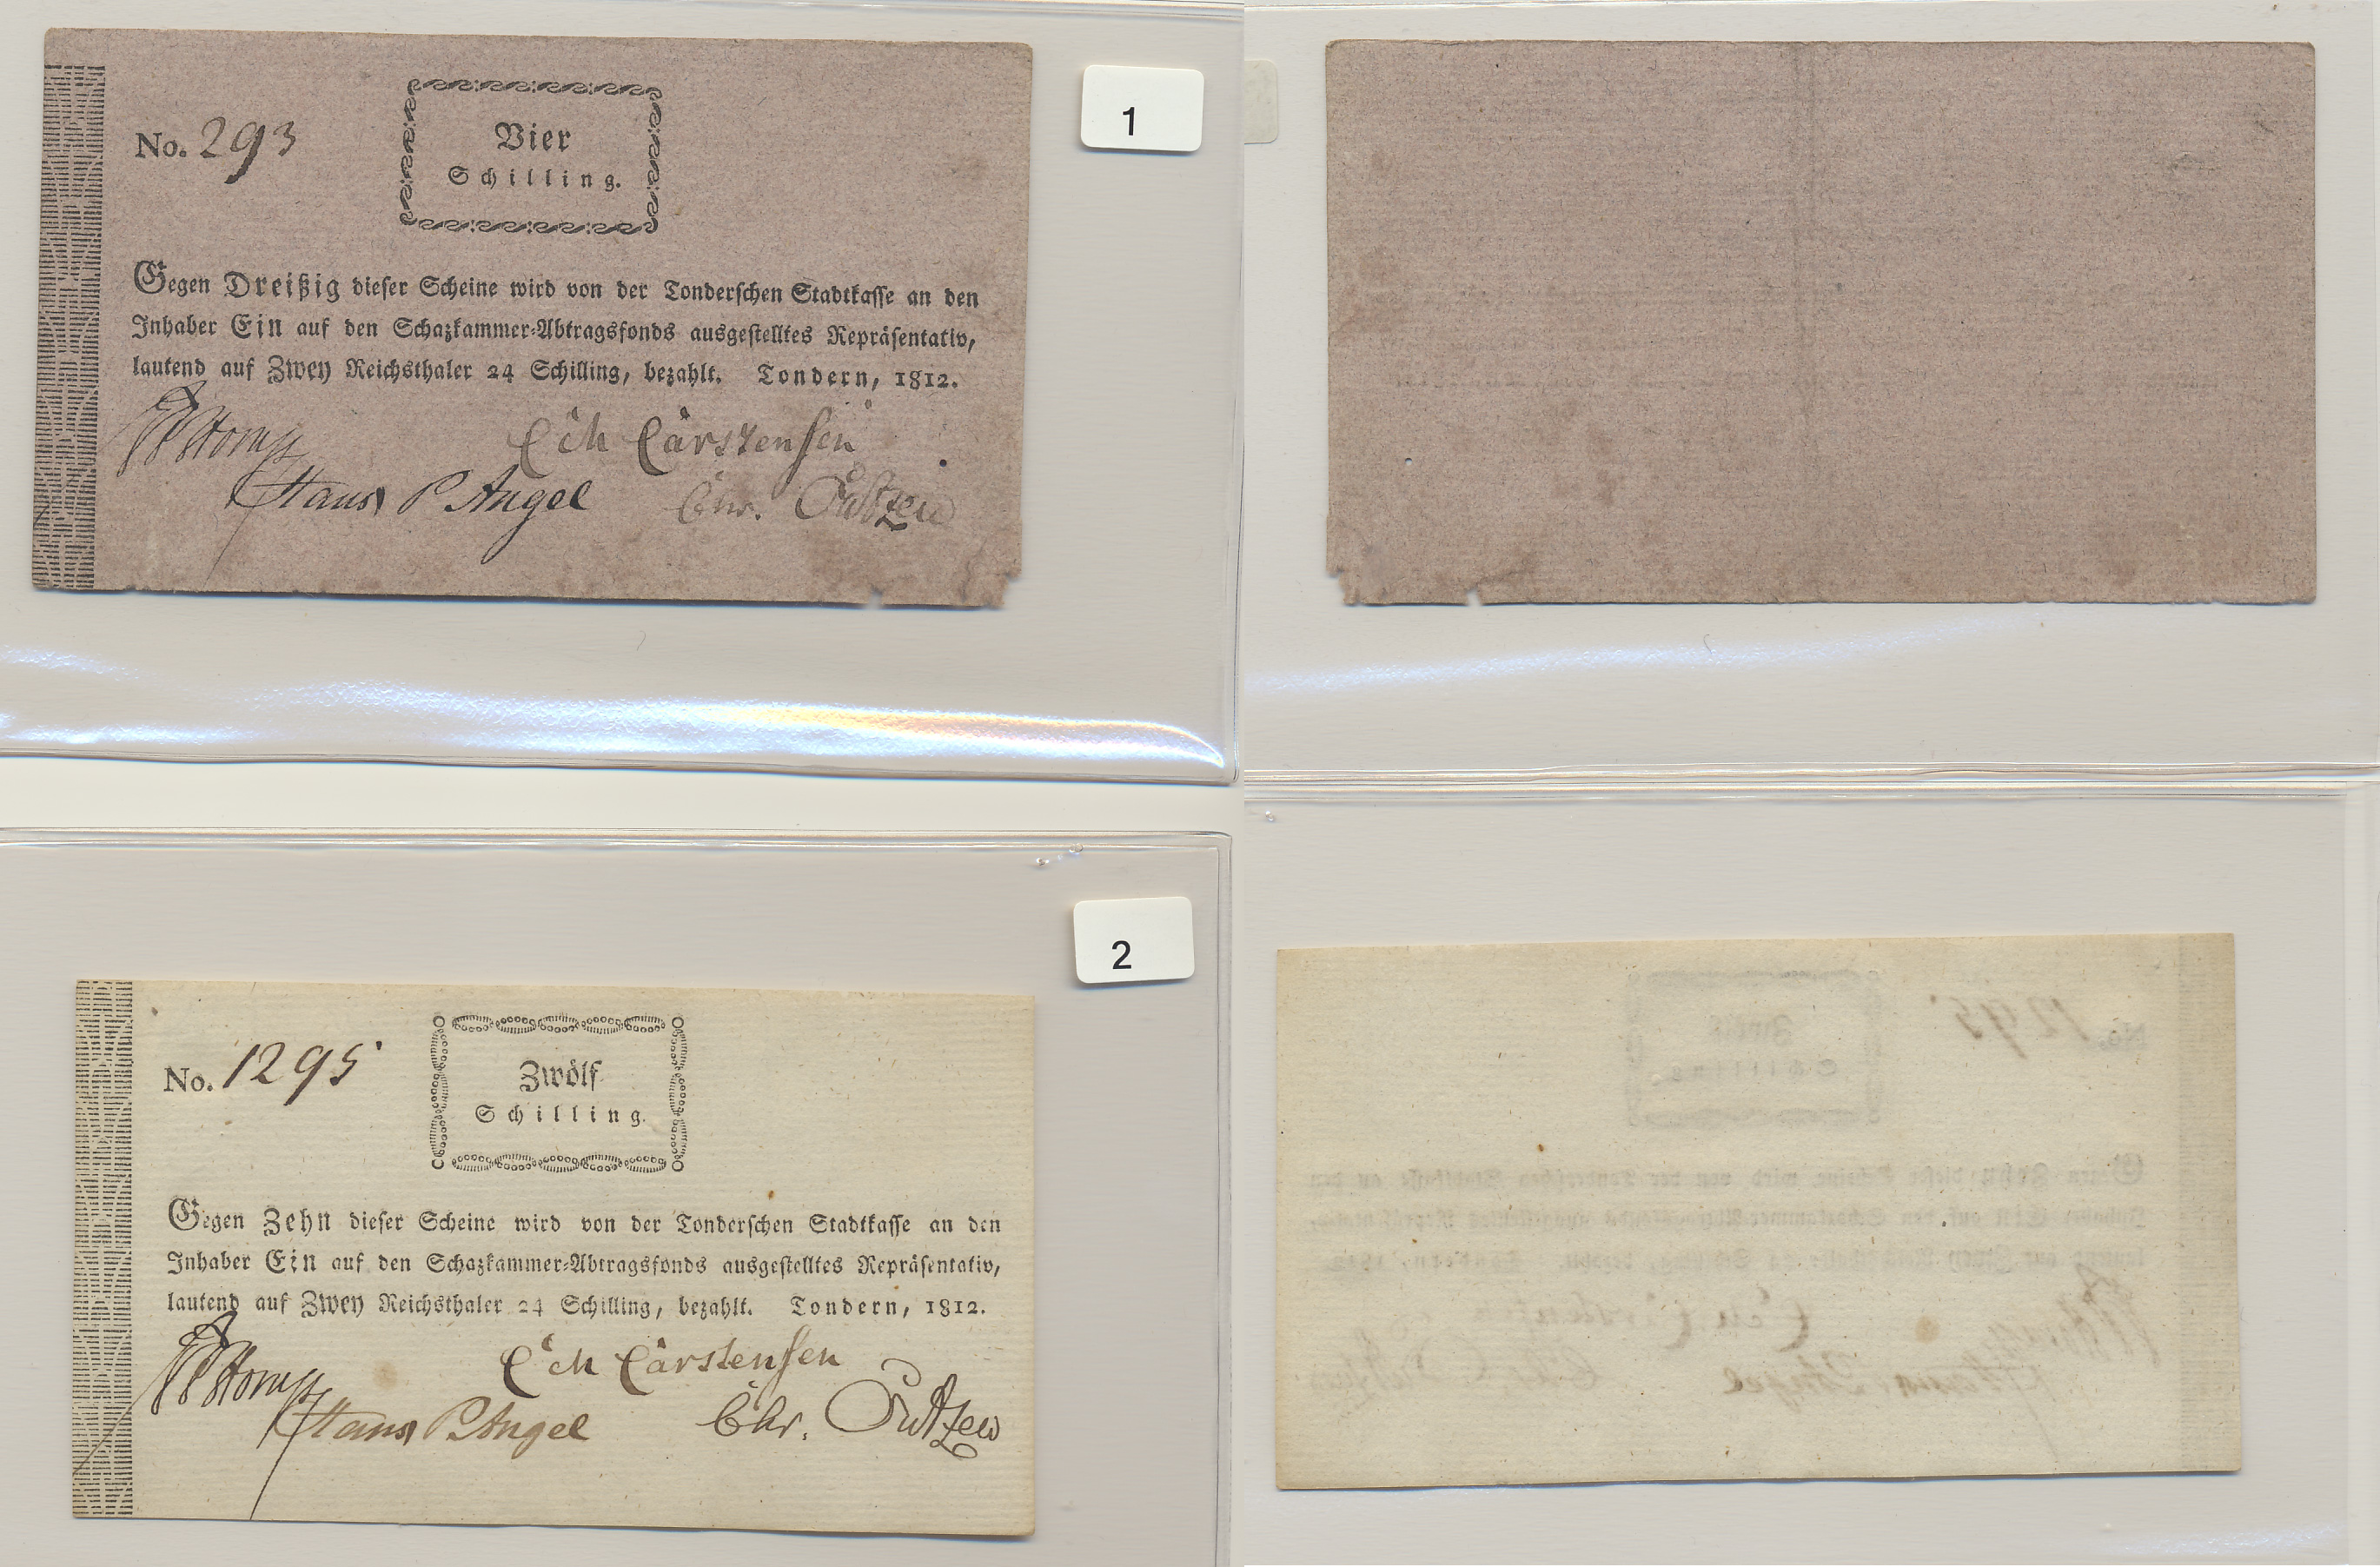 1
No. 293
Vier
Schilling.
Gegen Dreißig dieser Scheine wird von der Tonderschen Stadtkasse an den
Inhaber Ein auf den Schazkammer-Abtragsfonds ausgestelltes Repräsentativ,
lautend auf Zwey Reichsthaler 24 Schilling, bezahlt. Tondern, 1812.
Carstensen
Hans P Angel Chr.
2
No. 1295
Zwölf
Schilling.
Gegen Zehn dieser Scheine wird von der Tonderschen Stadtkasse an den
Inhaber Ein auf den Schazkammer-Abtragsfonds ausgestelltes Repräsentativ,
lautend auf Zwey Reichsthaler 24 Schilling, bezahlt. Tondern, 1812.
Carstensen
Hans P Angel Chr.